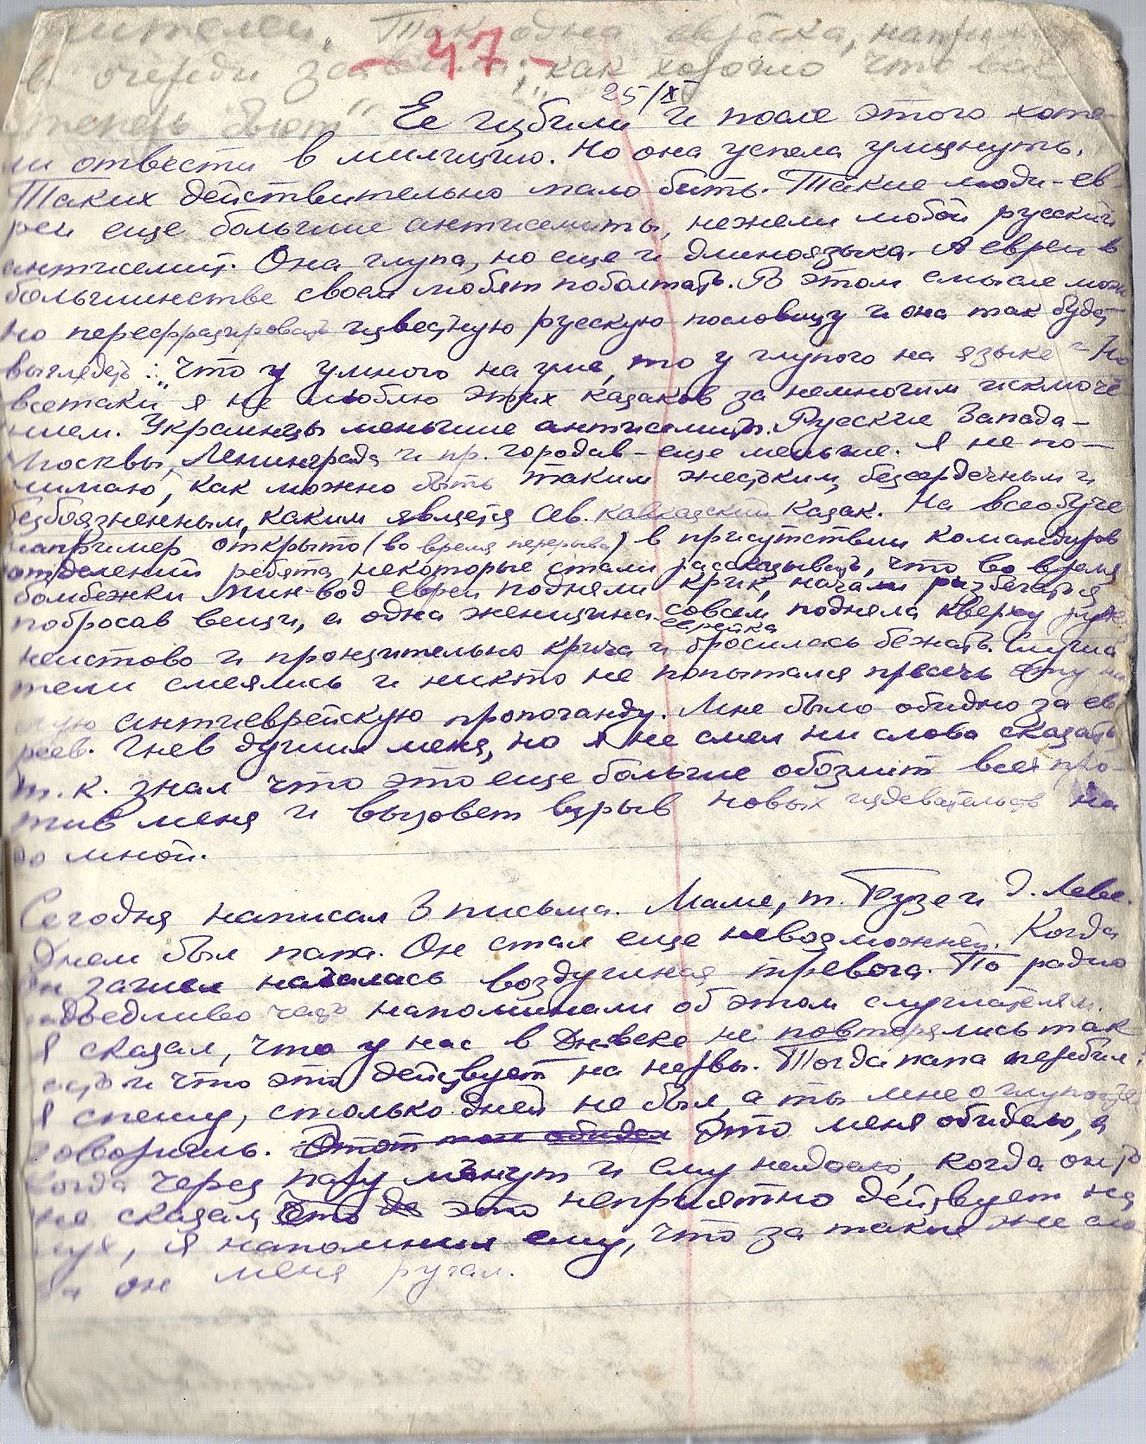 жителей. Так одна еврейка,
- 47 -
в очереди заявила: „как хорошо что вас
теперь бьют"
25/XI
Ее избили и после этого хоте-
ли отвести в милицию. Но она успела улизнуть.
Таких действительно мало бить. Такие люди-ев-
реи еще большие антисемиты, нежели любой русский
антисемит. Она глупа, но еще и длиноязыка. А евреи в
большинстве своем любят поболтать. В этом смысле мож
но перефразировать известную русскую пословицу и она так будет
выглядеть: „Что у умного на уме, то у глупого на языке" - Но
всетаки я не люблю этих казаков за немногим исключе
нием. Украинцы меньшие антисемиты. Русские Запада -
Москвы, Ленинграда и пр. городав - еще меньшие. Я не по-
нимаю, как можно быть таким жестоким, безсердечным и
безбоязненным, каким является Сев. Кавказский Казак. На всеобуче
например открыто (во время перерыва) в присутствии командиров
отделений ребята некоторые стали рассказывать, что во время
бомбежки Мин-вод евреи подняли крик, начали разбегатся
побросав вещи, а одна женщина совсем подняла кверху руки
еврейка
неистово и пронзительно крича и бросилась бежать. Слуша
тели смеялись и никто не попытался пресечь эту
антиеврейскую пропоганду. Мне было обидно за ев
реев. Гнев душил меня, но я не смел ни слова сказать,
т.к. знал что это еще больше обозлит всех про-
тив меня и вызовет взрыв новых издевательств на
до мной.
Сегодня написал 3 письма. Маме, т. Бузе и Д. Леве.
Днем был папа. Он стал еще невозможней. Когда
он зашел началась воздушная тревога. По радио
надоедливо часто напоминали об этом слушателям.
Я сказал, что у нас в Дн-веке не повторялись так
часто и что это действует на нервы. Тогда папа перебил:
Я спешу, столько дней не был, а ты мне о глупостях
говоришь. Это меня обидело, а
когда через пару минут и ему надоело, когда он
не сказал что это неприятно действует на
слух, я напомнил ему, что за такие же сло
ва он меня ругал.